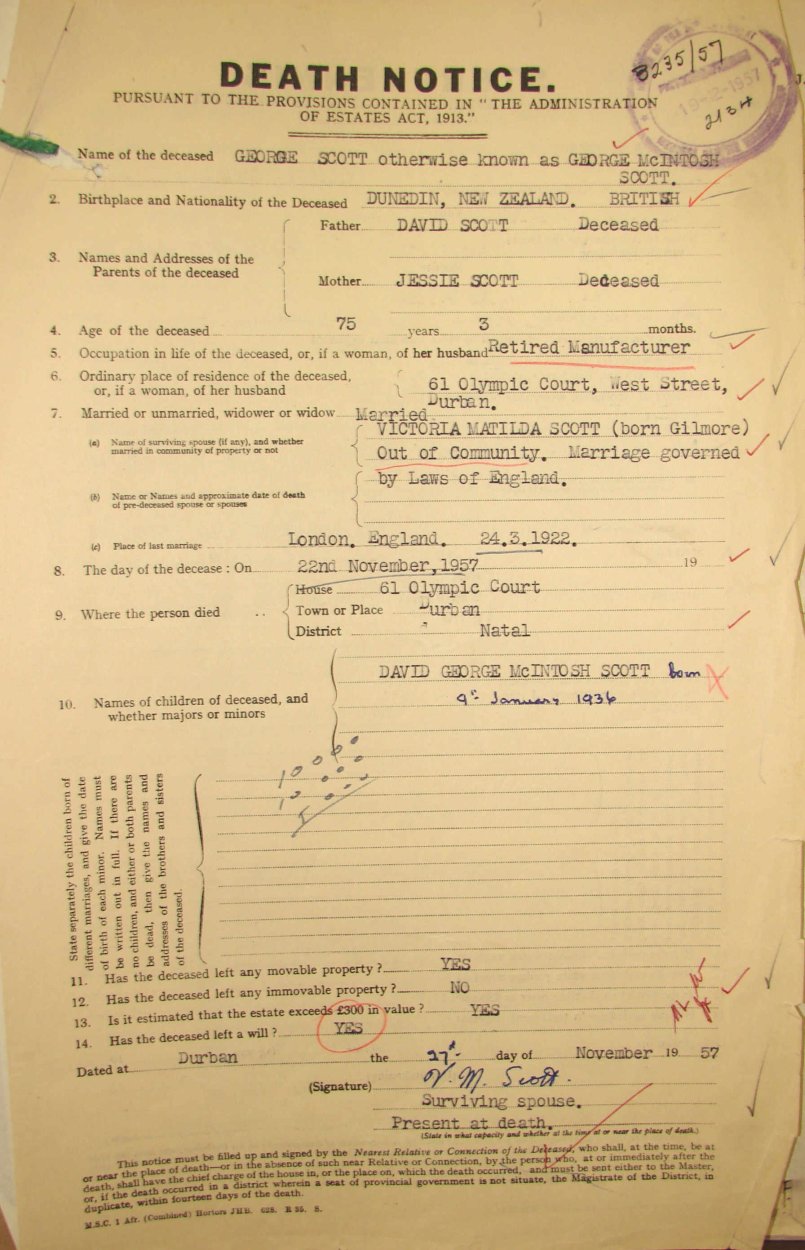 8235/57
2134
DEATH NOTICE.
PURSUANT TO THE PROVISIONS CONTAINED IN "THE ADMINISTRATION
OF ESTATES ACT, 1913."
Name of the deceased GEORGE SCOTT otherwise known as GEORGE McINTOSH
SCOTT.
2. Birthplace and Nationality of the Deceased DUNEDIN, NEW ZEALAND. BRITISH
Father DAVID SCOTT Deceased
3. Names and Addresses of the
Parents of the deceased
Mother JESSIE SCOTT Deceased
4. Age of the deceased 75 years 3 months.
5. Occupation in life of the deceased, or, if a woman, of her husband Retired Manufacturer
6. Ordinary place of residence of the deceased,
or, if a woman, of her husband 61 Olympic Court, West Street,
Durban.
7. Married or unmarried, widower or widow Married
VICTORIA MATILDA SCOTT (born Gilmore)
(a) Name of surviving spouse (if any), and whether
married in community of property or not Out of Community. Marriage governed
by Laws of England.
(b) Name or Names and approximate date of death
of pre-deceased spouse or spouses
(c) Place of last marriage London, England. 24.3.1922.
8. The day of the decease : On 22nd November, 1957 19
House 61 Olympic Court
9. Where the person died .. Town or Place Durban
District " Natal
DAVID GEORGE McINTOSH SCOTT born
9th January 1936
10. Names of children of deceased, and
whether majors or minors
State separately the children born of
different marriages, and give the date
of birth of each minor. Names must
be written out in full. If there are
no children, and either or both parents
be dead, then give the names and
addresses of the brothers and sisters
of the deceased.
11. Has the deceased left any movable property ? YES
12. Has the deceased left any immovable property ? NO
13. Is it estimated that the estate exceeds £300 in value ? YES
14. Has the deceased left a will ? YES
Dated at Durban the 27th day of November 19 57
(Signature) V. M. Scott.
Surviving spouse.
Present at death.
(State in what capacity and whether at the time at or near the place of death.)
This notice must be filled up and signed by the Nearest Relative or Connection of the Deceased, who shall, at the time, be at
or near the place of death—or in the absence of such near Relative or Connection, by the person who, at or immediately after the
death, shall have the chief charge of the house in, or the place on, which the death occurred, and must be sent either to the Master,
or, if the death occurred in a district wherein a seat of provincial government is not situate, the Magistrate of the District, in
duplicate, within fourteen days of the death.
M.S.C. 1 Afr. (Combined) Hortors JHB.